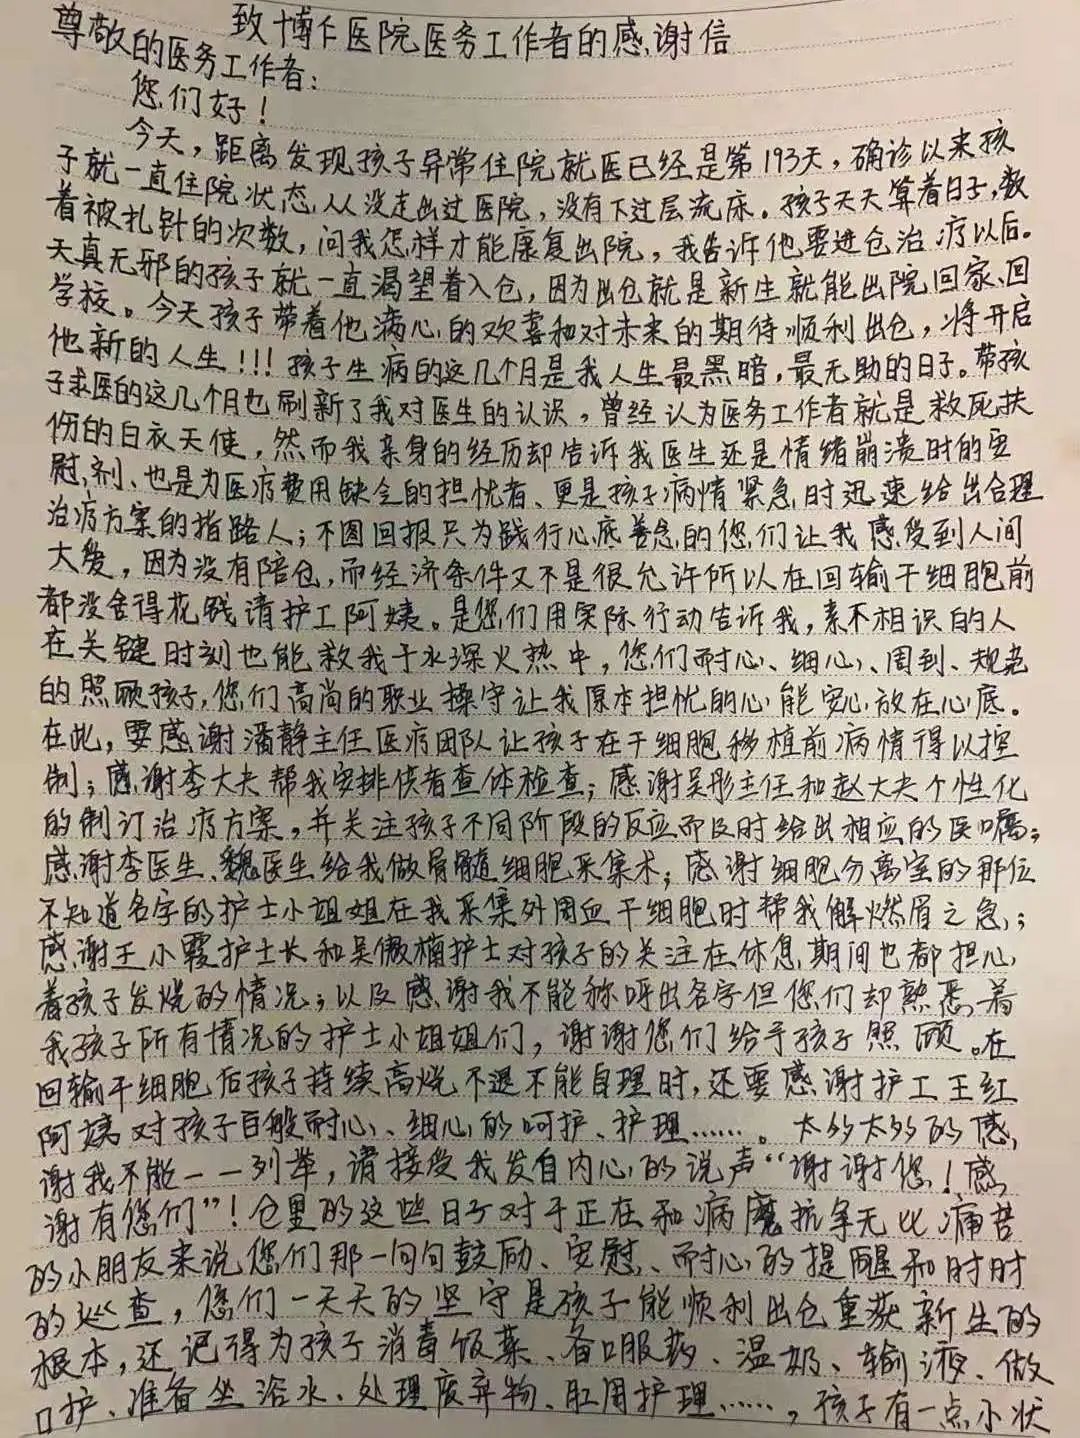 致博仁医院医务工作者的感谢信
尊敬的医务工作者：
您们好！
今天，距离发现孩子异常住院就医已经是第193天，确诊以来孩
子就一直住院状态从没走出过医院，没有下过层流床。孩子天天算着日子，数
着被扎针的次数，问我怎样才能康复出院，我告诉他要进仓治疗以后。
天真无邪的孩子就一直渴望着入仓，因为出仓就是新生就能出院回家、回
学校。今天孩子带着他满心的欢喜和对未来的期待顺利出仓，将开启
他新的人生！！！孩子生病的这几个月是我人生最黑暗，最无助的日子。带孩
子求医的这几个月也刷新了我对医生的认识，曾经认为医务工作者就是救死扶
伤的白衣天使，然而我亲身的经历却告诉我医生还是情绪崩溃时的安
慰剂、也是为医疗费用缺仝的担忧者、更是孩子病情紧急时迅速给出合理
治疗方案的指路人；不图回报只为践行心底善念的您们让我感受到人间
大爱，因为没有陪仓，而经济条件又不是很允许所以在回输干细胞前
都没舍得花钱请护工阿姨。是您们用实际行动告诉我，素不相识的人
在关键时刻也能救我于水深火热中，您们耐心、细心、周到、规范
的照顾孩子，您们高尚的职业操守让我原本担忧的心能安心放在心底。
在此，要感谢潘静主任医疗团队让孩子在干细胞移植前病情得以控
制；感谢李大夫帮我安排供者查体检查；感谢吴彤主任和赵大夫个性化
的制订治疗方案，并关注孩子不同阶段的反应而及时给出相应的医嘱；
感谢李医生、魏医生给我做骨髓细胞采集术；感谢细胞分离室的那位
不知道名字的护士小姐姐在我采集外周血干细胞时帮我解燃眉之急；
感谢王小霞护士长和吴傲楠护士对孩子的关注在休息期间也都担心
着孩子发烧的情况；以及感谢我不能称呼出名字但您们却熟悉着
我孩子所有情况的护士小姐姐们，谢谢您们给予孩子照顾。在
回输干细胞后孩子持续高烧不退不能自理时，还要感谢护工王红
阿姨对孩子百般耐心、细心的呵护、护理……。太多太多的感
谢我不能一一列举，请接受我发自内心的说声“谢谢您！感
谢有您们”！仓里的这些日子对于正在和病魔抗争无比痛苦
的小朋友来说您们那一句句鼓励、安慰、耐心的提醒和时时
的巡查，您们一天天的坚守是孩子能顺利出仓重获新生的
根本，还记得为孩子消毒饭菜、备口服药、温奶、输液、做
口护、准备坐浴水、处理废弃物、肛周护理……，孩子有一点小状